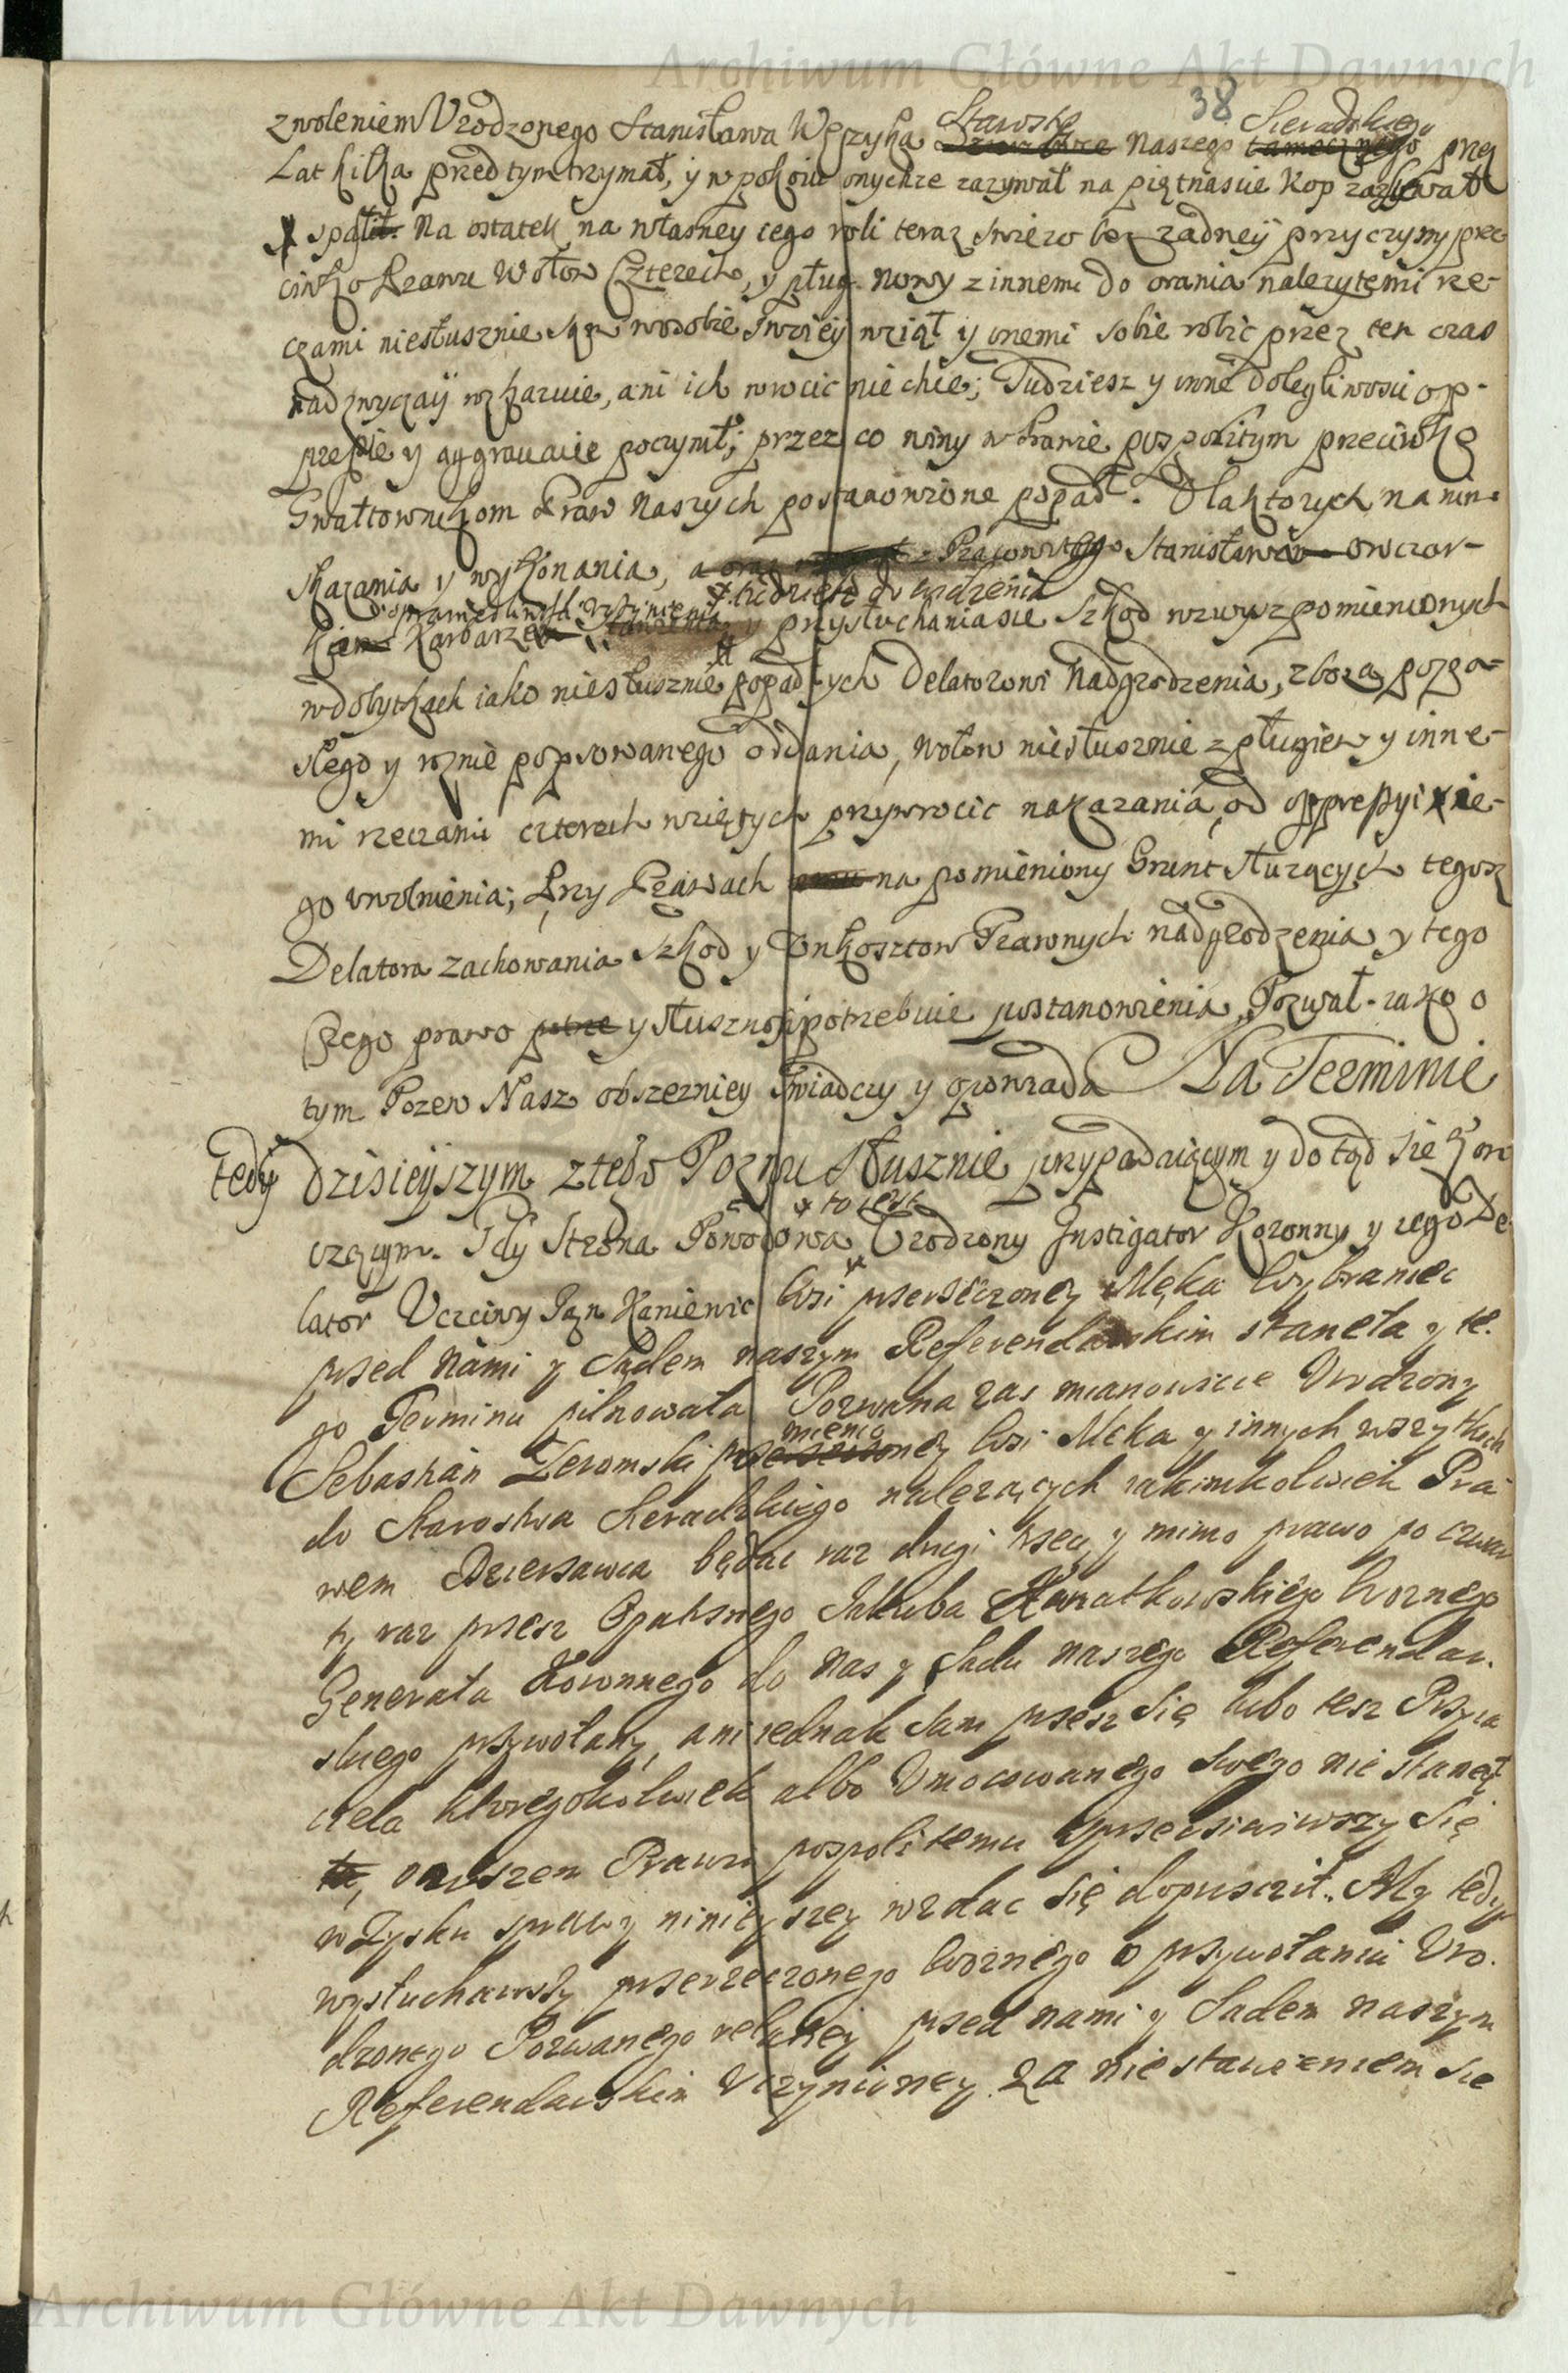 Archiwum Główne Akt Dawnych
38
Starosty Sieradzkiego
zwoleniem Vrodzonego Stanisława Wężyka naszego tamecznego przez
Lat kilka przed tym trzymał, y w pokoiu onychze zazywał na piętnascie kop zazywał
spalił. Na ostatek na własney iego roli teraz swiezo bez zadney przyczyny prze
ciwko Prawu Wołow Czterech, y pług nowy z innemi do orania nalezytemi rze-
czami niesłusznie wziął y onemi sobie robic przez ten czas
nad zwyczay w karwie, ani ich wrocic nie chce; Tudziesz y inne dolegliwosci op-
pressie y aggrauacie poczynił; przez co winy w Prawie pospolitym przeciwko
Gwałtownikom Praw Naszych postanowione popadł. Dla ktorych na nim
skazania y wykonania, a oraz Pracowitego Stanisława owczar-
sprawiedliwosci Vczynienia tudziesz do widzenia
Karbarze y przysłuchania się Szkod wzwysz pomienionych
w dobytkach iako niesłusznie popadłych Delatorowi Nadgrodzenia, zboza pozga-
słego y wznie popsowanego oddania, wołow niesłusznie z pługiem y inne-
mi rzeczami czterech wziętych przywrocic nakazania, od oppressyi ie-
go vwolnienia; Przy Prawach na pomieniony Grunt słuzących tegosz
Delatora zachowania Szkod y Vnkosztow Prawnych nadgrodzenia y tego
Czego prawo y słusznosc potrzebuie postanowienia, Pozwał. iako o
tym Pozew Nasz obszerniey swiadczy y opowiada Na Terminie
tedy dzisieyszym z tego Pozwu Słusznie przypadaiącym y dotąd się kon
to iest
czącym. Gdy Strona Powodowa Vrodzony Instigator Koronny y iego De
lator Vczciwy Jan Kaniewic Wsi przerzeczoney Męka Wybraniec
przed Nami y Sądem naszym Referendarskim stanęła y te.
go Terminu pilnowała Pozwana zas mianowicie Vrodzony
mienio
Sebastian Zeromski przerzeczoney Wsi Męka y innych wszytkich
do Starostwa Sieradzkiego nalezących iakimkolwiek Pra
wem Dzierzawca będąc raz drugi trzeci y mimo prawo po czwar
ty raz przez Opatrznego Jakuba Kwiatkowskiego Woznego
Generała Koronnego do Nas y Sądu naszego Referendar.
skiego przywołany, ani iednak sam przesz się lubo tesz Przyia
ciela ktoregokolwiek albo Vmocowanego swego nie stanął
owszem Prawu pospolitemu sprzeciwiwszy się
w Zysku sprawy ninieyszey wzdac się dopuscił. My tedy
wysłuchawszy przerzeczonego Woznego o przywołaniu Vro.
dzonego Pozwanego relatiey przed nami y Sądem naszym
Referendarskim Vczynioney za nie stawieniem się
Archiwum Główne Akt Dawnych